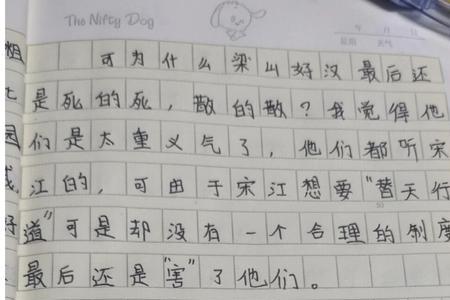 The Nifty Dog
年 月 日
可为什么梁山好汉最后还
是死的死，散的散？我觉得他
们是太重义气了，他们都听宋
江的，可由于宋江想要“替天行
道”可是却没有一个合理的制度
最后还是“害”了他们。